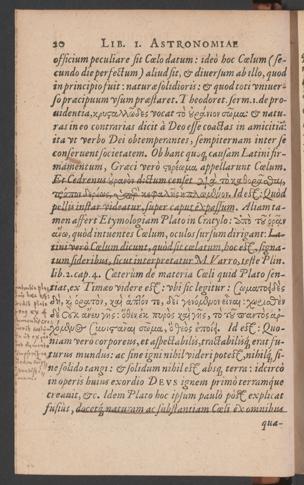 20 LIB. I. ASTRONOMIAE
officium peculiare sit Cœlo datum: ideò hoc Cœlum (se-
cundo die perfectum) aliud sit, & diversum ab illo, quod
in principio fuit: naturæ solidioris: & quod toti univer-
so præcipuum usum præstaret. Theodoret. serm. 1. de pro-
videntia, κρυσταλλῶδες vocat τὸ οὐράνιον σῶμα: & natu-
ras in eo contrarias dicit à Deo esse coactas in amicitiā:
ita ut verbo Dei obtemperantes, sempiternam inter se
conservent societatem. Ob hanc quoq, causam Latini fir-
mamentum, Græci verò στερέωμα appellarunt Cœlum.
Et Cedrenus οὐρανὸν dictum censet
Id est: Quòd
pellis instar videatur, super caput expassum. Aliam ta-
men affert Etymologiam Plato in Cratylo: ἀπὸ τοῦ ὁρᾶν
ἄνω, quòd intuentes Cœlum, oculos sursum dirigant: La-
tini verò Cœlum dicunt, quòd sit cœlatum, hoc est, signa-
tum sideribus, sicut interpretatur M. Varro, teste Plin.
lib. 2. cap. 4. Cæterùm de materia Cœli quid Plato sen-
tiat, ex Timæo videre est: ubi sic legitur: Σωματοειδὲς
δὲ, καὶ ὁρατὸν, καὶ ἁπτὸν τε, δεῖ γενόμενον εἶναι: χωρισθὲν
Id est: Quo-
niam verò corporeus, et aspectabilis, tractabilisq, erat fu-
turus mundus: ac sine igni nihil videri potest, nihilq, si-
ne solido tangi: & solidum nihil est absq, terra: idcircò
in operis huius exordio DEVS ignem primò terramque
creavit, &c. Idem Plato hoc ipsum paulò pòst explicat
fusius, docetq, naturam ac substantiam Cœli ex omnibus
qua-